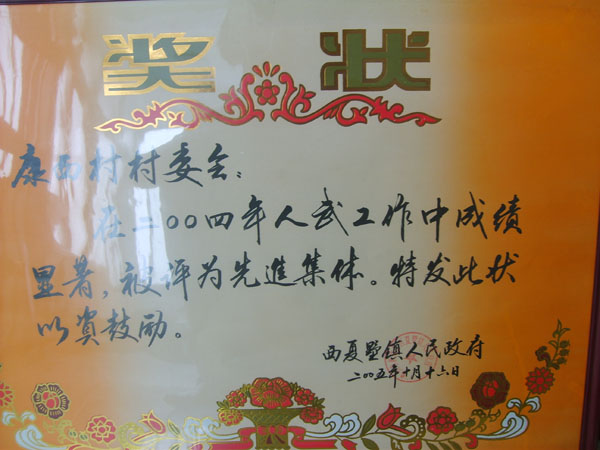 奖 状
康西村村委会：
在二〇〇四年人武工作中成绩
显著，被评为先進集体。特发此状
以资鼓励。
西夏墅镇人民政府
二〇〇五年十月十六日